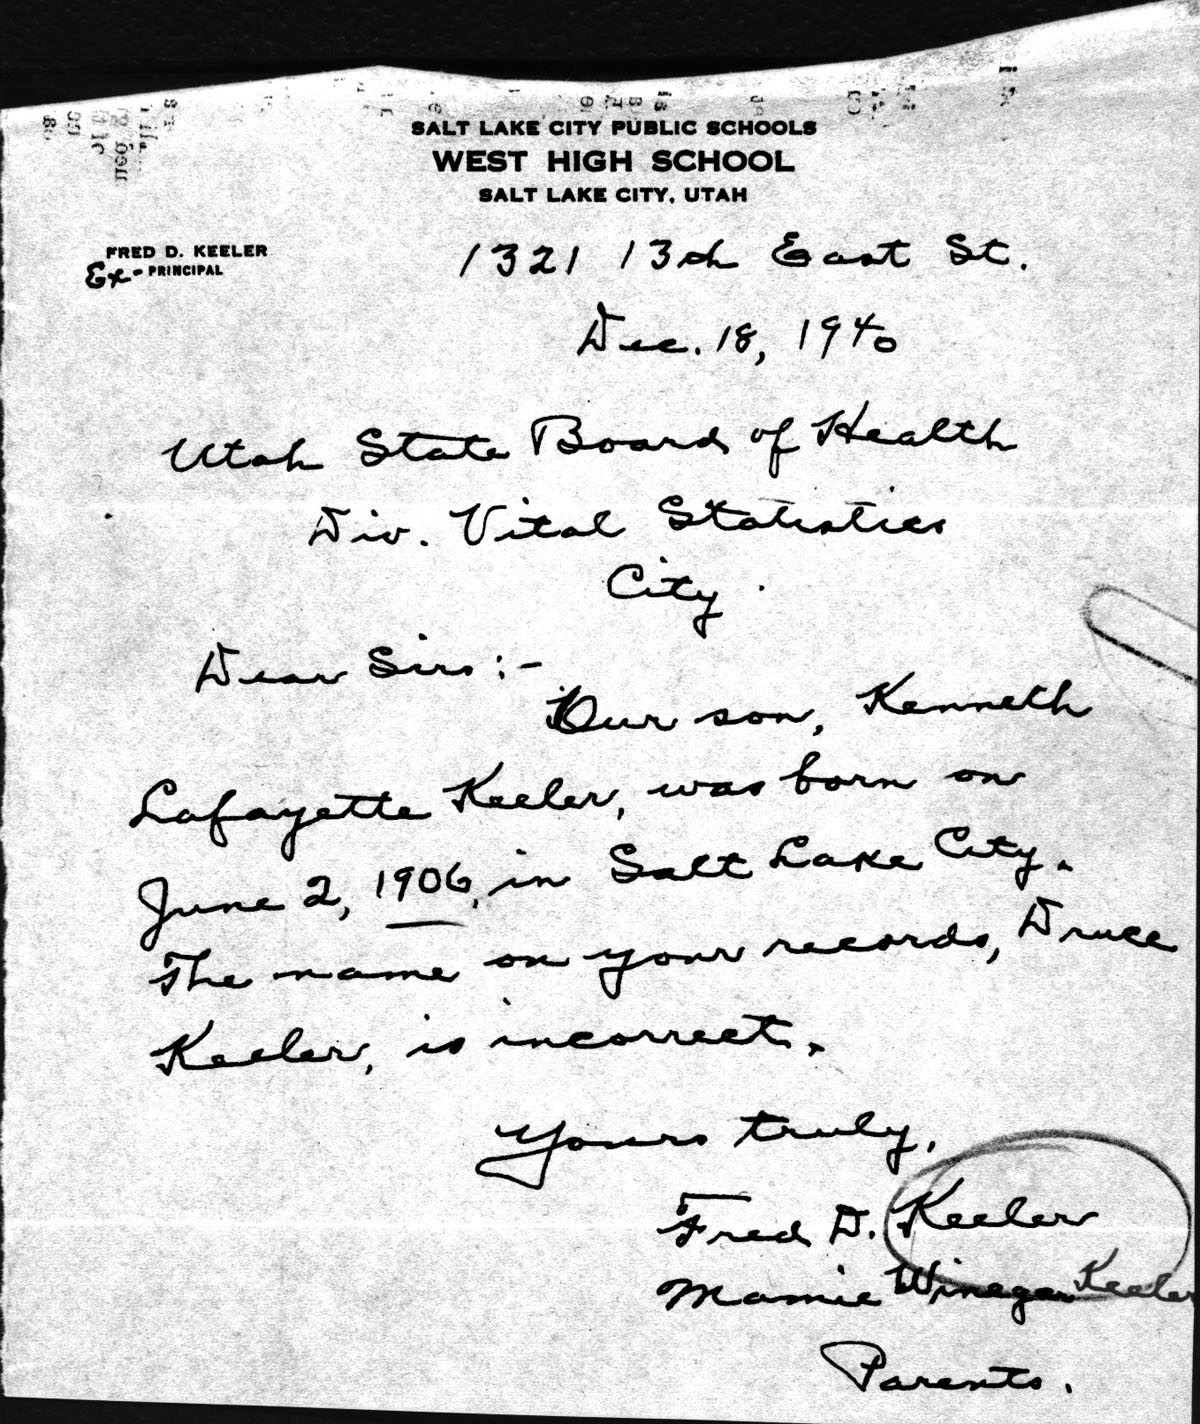 SALT LAKE CITY PUBLIC SCHOOLS
WEST HIGH SCHOOL
SALT LAKE CITY, UTAH
FRED D. KEELER
Ex-PRINCIPAL
1321 13th East St.
Dec. 18, 1940
Utah State Board of Health
Div. Vital Statistics
City.
Dear Sirs:-
Our son, Kenneth
Lafayette Keeler, was born on
June 2, 1906, in Salt Lake City.
The name on your records, Druce
Keeler, is incorrect.
Yours truly,
Fred D. Keeler
Mamie Winegar Keeler
Parents.